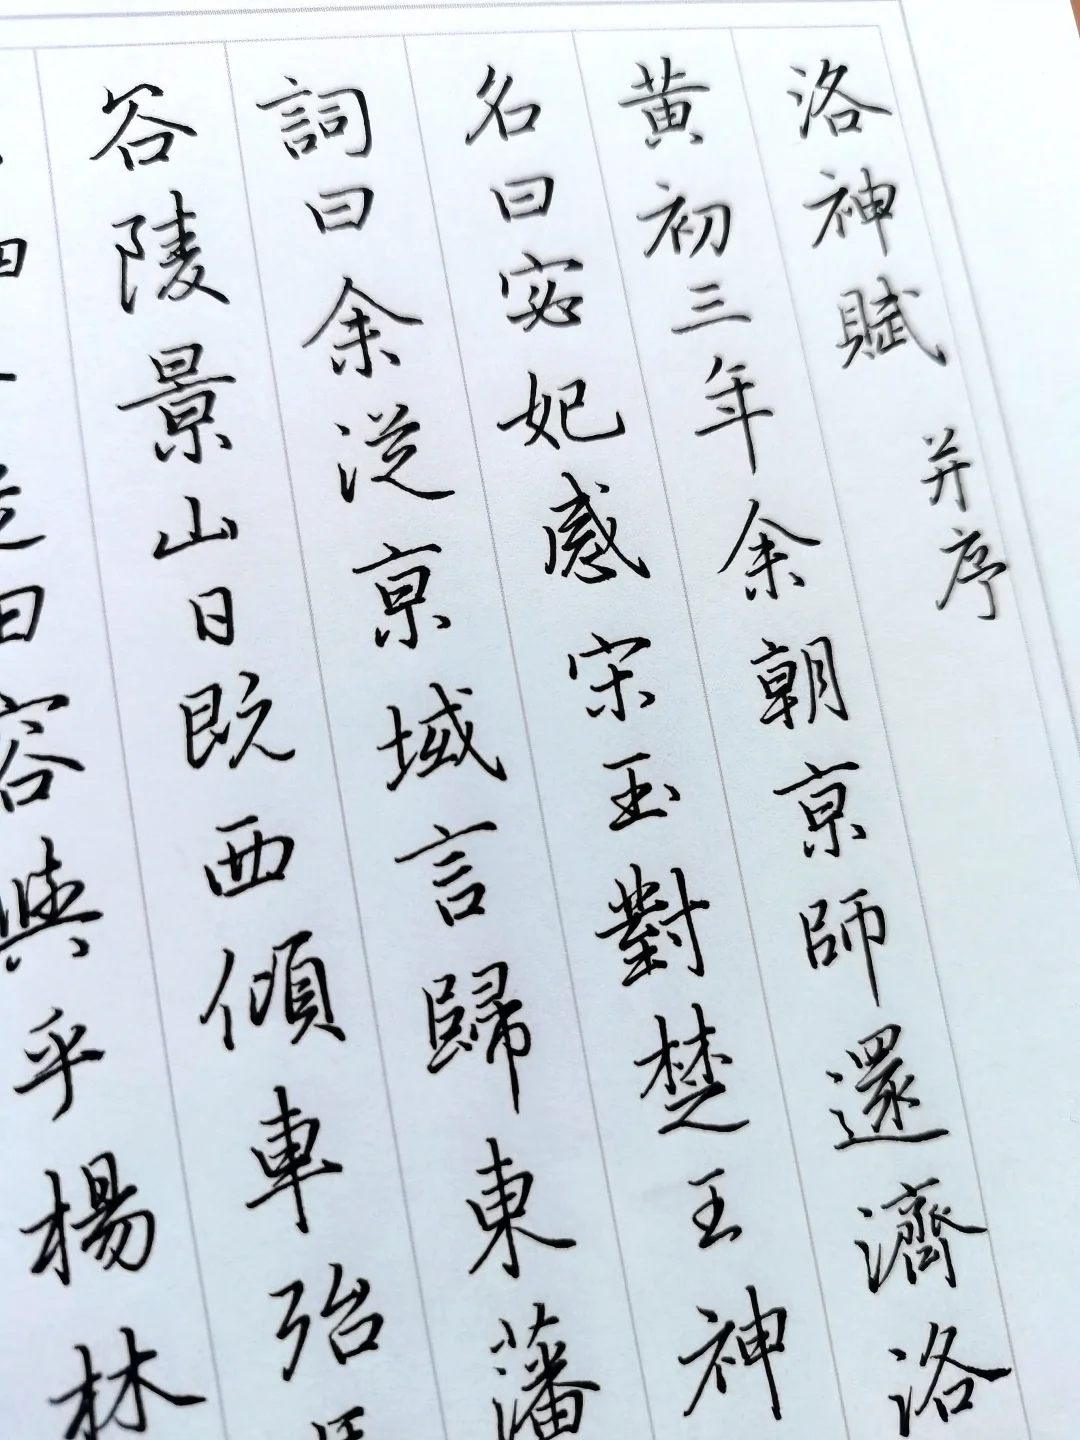 洛神賦 并序
黄初三年余朝京師還濟洛
名曰宓妃感宋玉對楚王神
詞曰余從京域言歸東藩
谷陵景山日既西傾車殆
田容與乎楊林